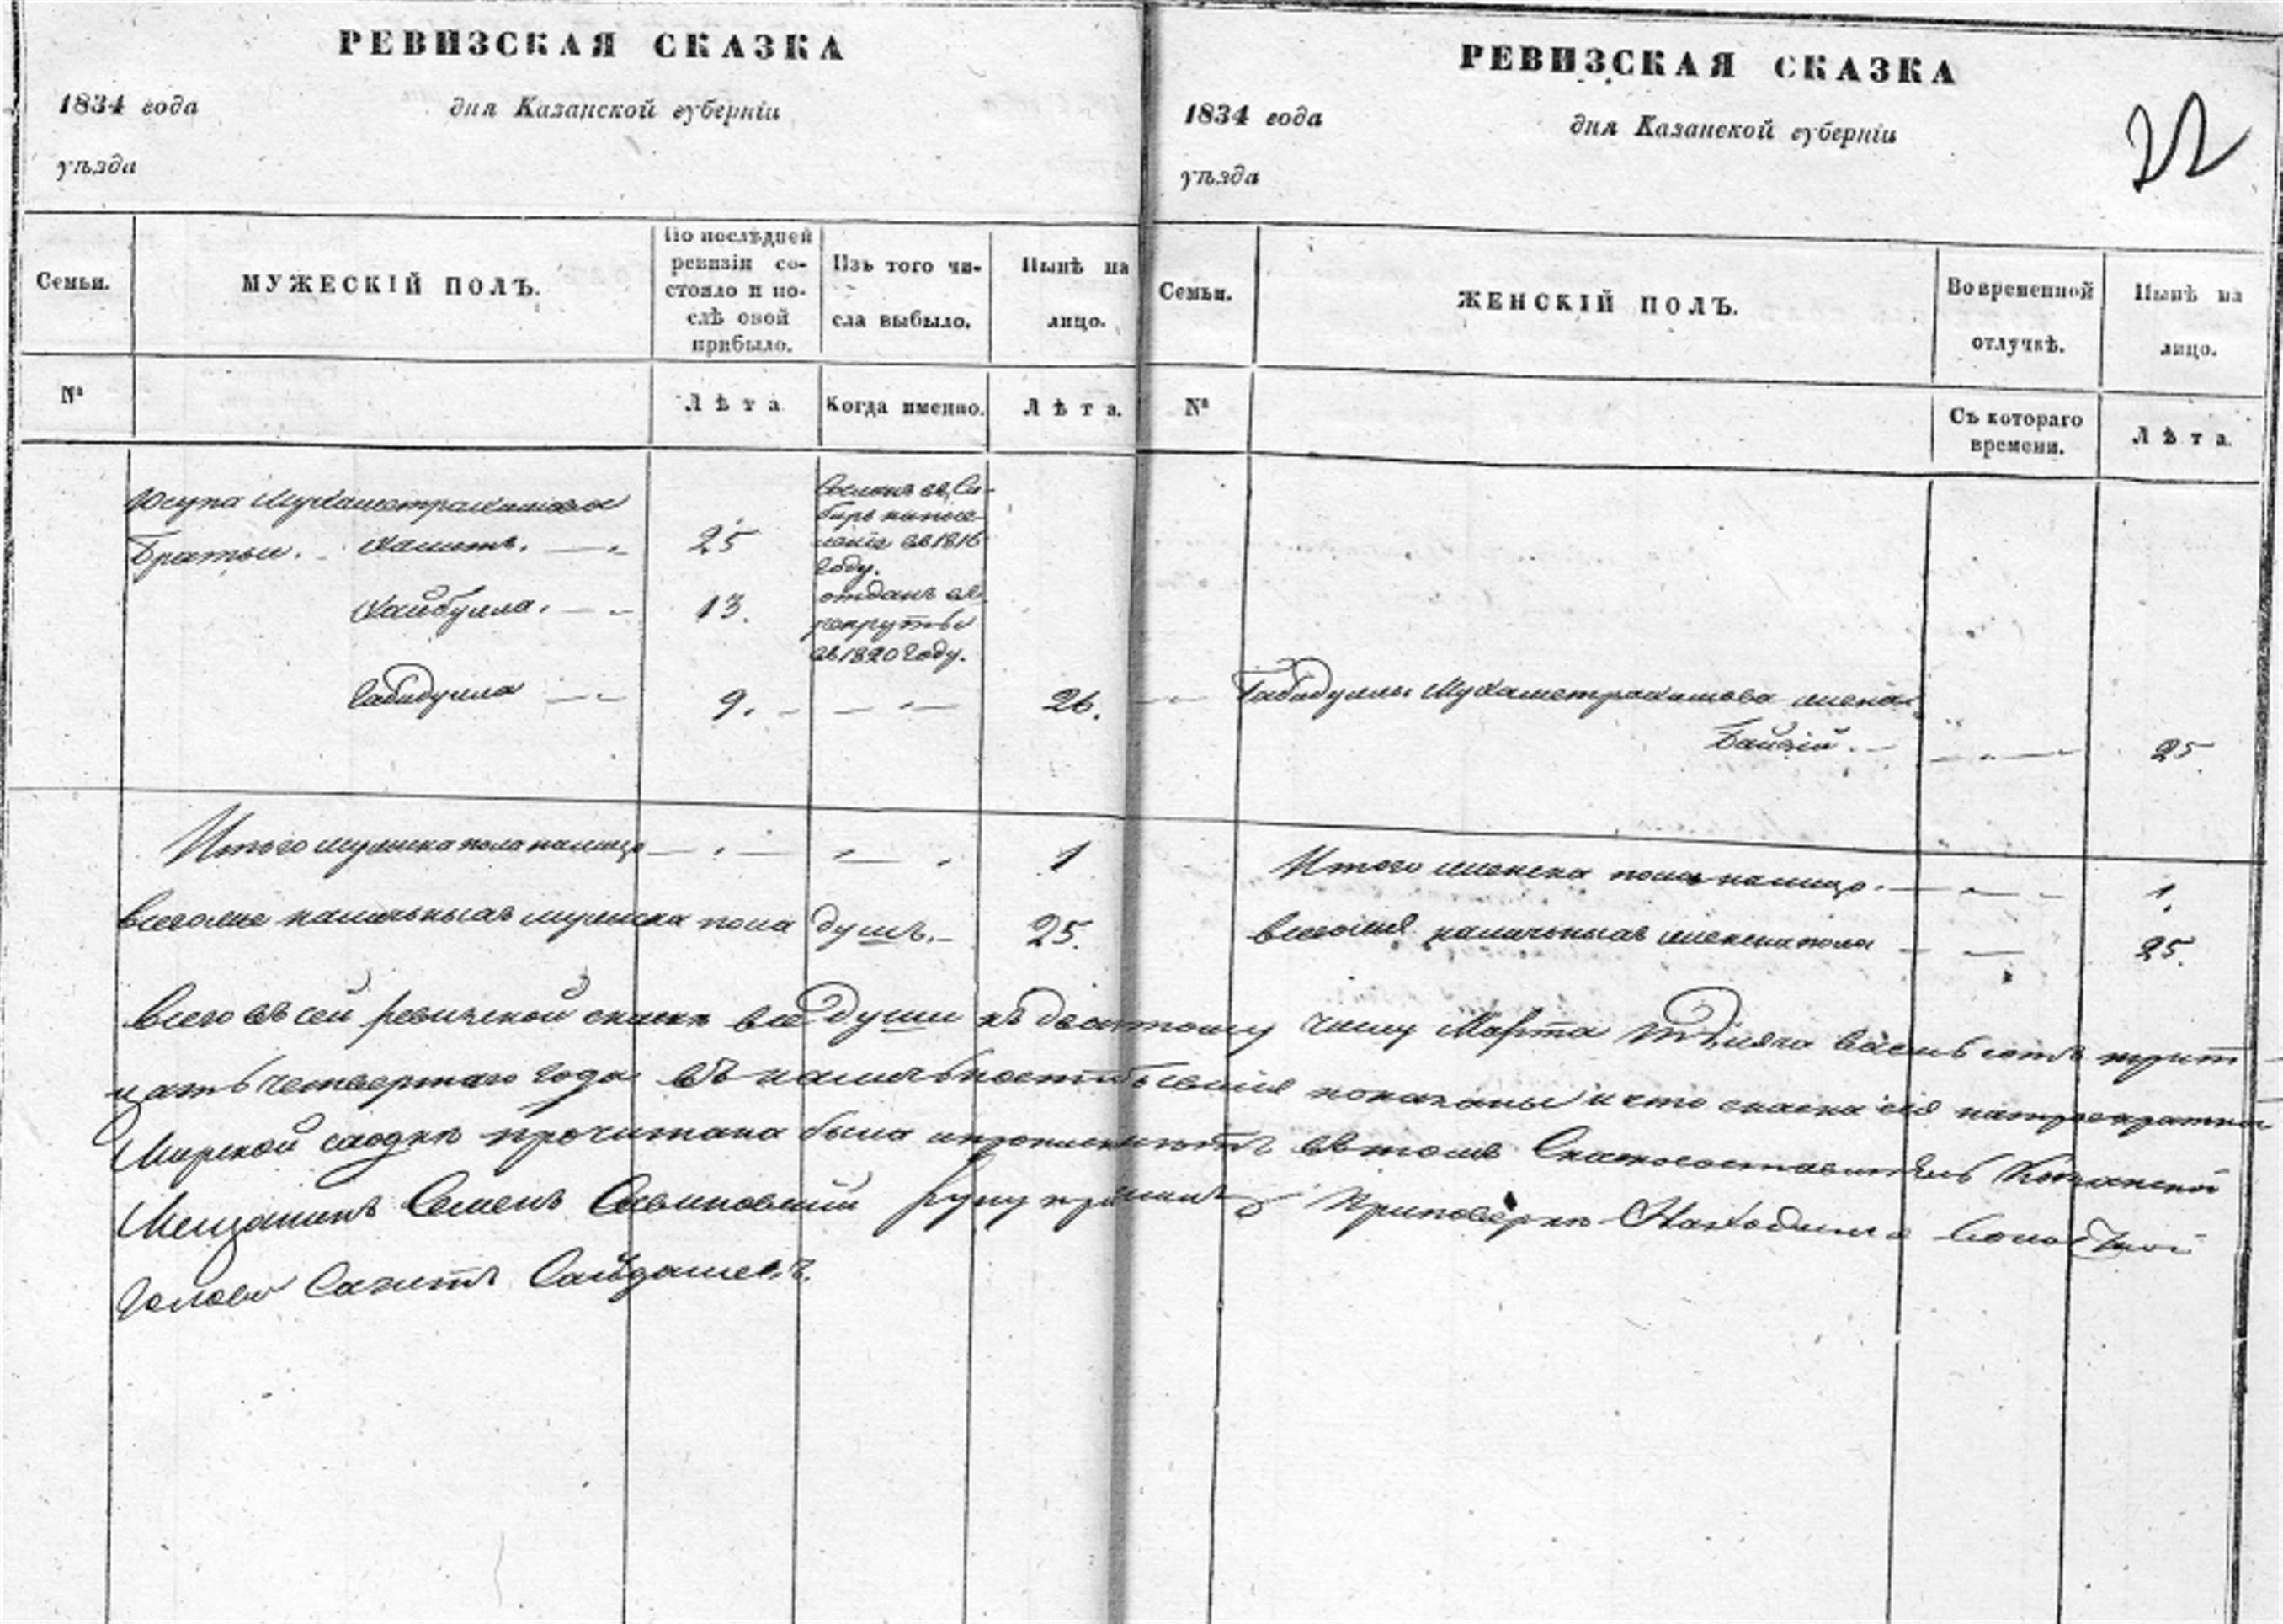 РЕВИЗСКАЯ СКАЗКА
1834 года дня Казанской губерніи
уѣзда
Семьи.
МУЖЕСКІЙ ПОЛЪ.
По послѣдней
ревизіи со-
стояло и по-
слѣ оной
прибыло.
Изъ того чи-
сла выбыло.
Нынѣ на
лицо.
№
Лѣта
Когда именно.
Лѣта.
Юсупа Мухаметрахимова
Братья. Хамитъ. 25 Сосланъ въ Си-
бирь на посе-
леніе въ 1816
году.
Хайбулла. 13. отданъ въ
рекруты
въ 1820 году.
Габидулла 9. 26.
Итого мужска пола налицо 1
Всего же наличныхъ мужска пола душъ. 25.
РЕВИЗСКАЯ СКАЗКА
22
1834 года дня Казанской губерніи
уѣзда
Семьи.
ЖЕНСКІЙ ПОЛЪ.
Во временной
отлучкѣ.
Нынѣ на
лицо.
№
Съ котораго
времени.
Лѣта.
Габидуллы Мухаметрахимова жена
25
Итого женска пола налицо. 1.
Всего же наличныхъ женска пола 25.
Всего въ сей ревизской сказкѣ все души къ десятому числу Марта восемь сотъ трит-
цать четвертаго года въ наличности бывшія показаны и что сказка сія
Мирской сходкѣ прочитана была въ томъ Сказкосоставитель Казанской
Мещанинъ Семенъ руку приложилъ При поверке Находился Волостной
Голова Сагитъ Сайдашевъ.